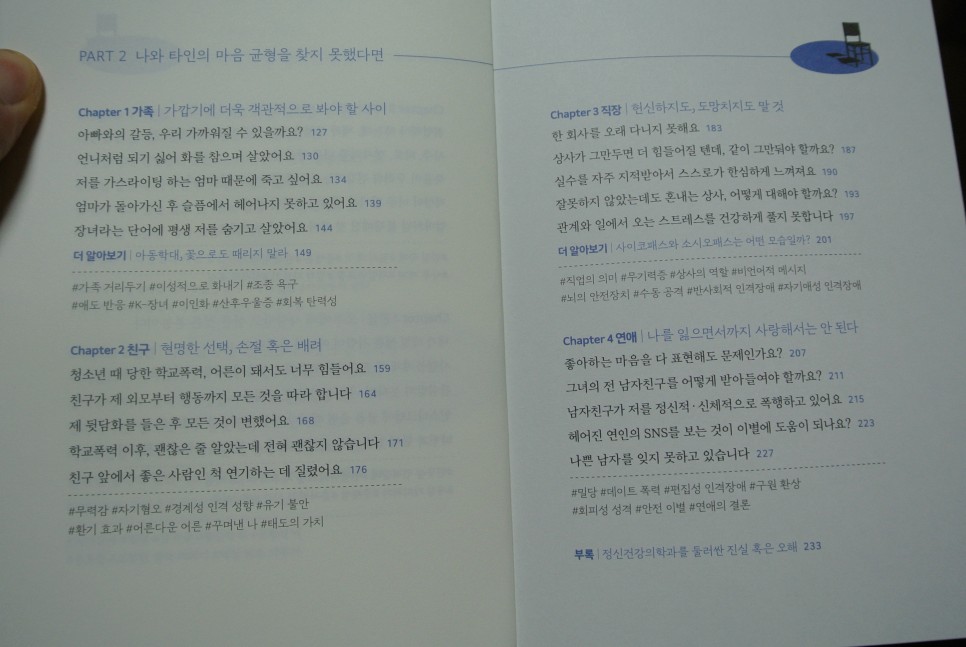 PART 2 나와 타인의 마음 균형을 찾지 못했다면
Chapter 1 가족 | 가깝기에 더욱 객관적으로 봐야 할 사이
아빠와의 갈등, 우리 가까워질 수 있을까요? 127
언니처럼 되기 싫어 화를 참으며 살았어요 130
저를 가스라이팅 하는 엄마 때문에 죽고 싶어요 134
엄마가 돌아가신 후 슬픔에서 헤어나지 못하고 있어요 139
장녀라는 단어에 평생 저를 숨기고 살았어요 144
더 알아보기 | 아동학대, 꽃으로도 때리지 말라 149
#가족 거리두기 #이성적으로 화내기 #조종 욕구
#애도 반응 #K-장녀 #이인화 #산후우울증 #회복 탄력성
Chapter 2 친구 | 현명한 선택, 손절 혹은 배려
청소년 때 당한 학교폭력, 어른이 돼서도 너무 힘들어요 159
친구가 제 외모부터 행동까지 모든 것을 따라 합니다 164
제 뒷담화를 들은 후 모든 것이 변했어요 168
학교폭력 이후, 괜찮은 줄 알았는데 전혀 괜찮지 않습니다 171
친구 앞에서 좋은 사람인 척 연기하는 데 질렸어요 176
#무력감 #자기혐오 #경계성 인격 성향 #유기 불안
#환기 효과 #어른다운 어른 #꾸며낸 나 #태도의 가치
Chapter 3 직장 | 헌신하지도, 도망치지도 말 것
한 회사를 오래 다니지 못해요 183
상사가 그만두면 더 힘들어질 텐데, 같이 그만둬야 할까요? 187
실수를 자주 지적받아서 스스로가 한심하게 느껴져요 190
잘못하지 않았는데도 혼내는 상사, 어떻게 대해야 할까요? 193
관계와 일에서 오는 스트레스를 건강하게 풀지 못합니다 197
더 알아보기 | 사이코패스와 소시오패스는 어떤 모습일까? 201
#직업의 의미 #무기력증 #상사의 역할 #비언어적 메시지
#뇌의 안전장치 #수동 공격 #반사회적 인격장애 #자기애성 인격장애
Chapter 4 연애 | 나를 잃으면서까지 사랑해서는 안 된다
좋아하는 마음을 다 표현해도 문제인가요? 207
그녀의 전 남자친구를 어떻게 받아들여야 할까요? 211
남자친구가 저를 정신적·신체적으로 폭행하고 있어요 215
헤어진 연인의 SNS를 보는 것이 이별에 도움이 되나요? 223
나쁜 남자를 잊지 못하고 있습니다 227
#밀당 #데이트 폭력 #편집성 인격장애 #구원 환상
#회피성 성격 #안전 이별 #연애의 결론
부록 | 정신건강의학과를 둘러싼 진실 혹은 오해 233